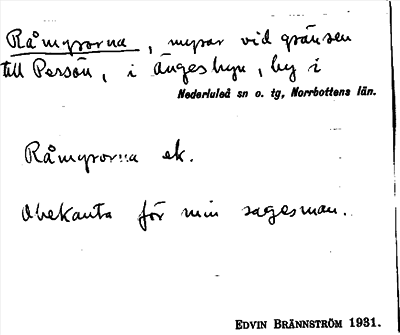 Råmyrorna, myrar vid gränsen
till Persön, i Ängesbyn, by i
Nederluleå sn o. tg, Norrbottens län.
Råmyrorna ek.
Obekanta för min sagesman.
EDVIN BRÄNNSTRÖM 1931.